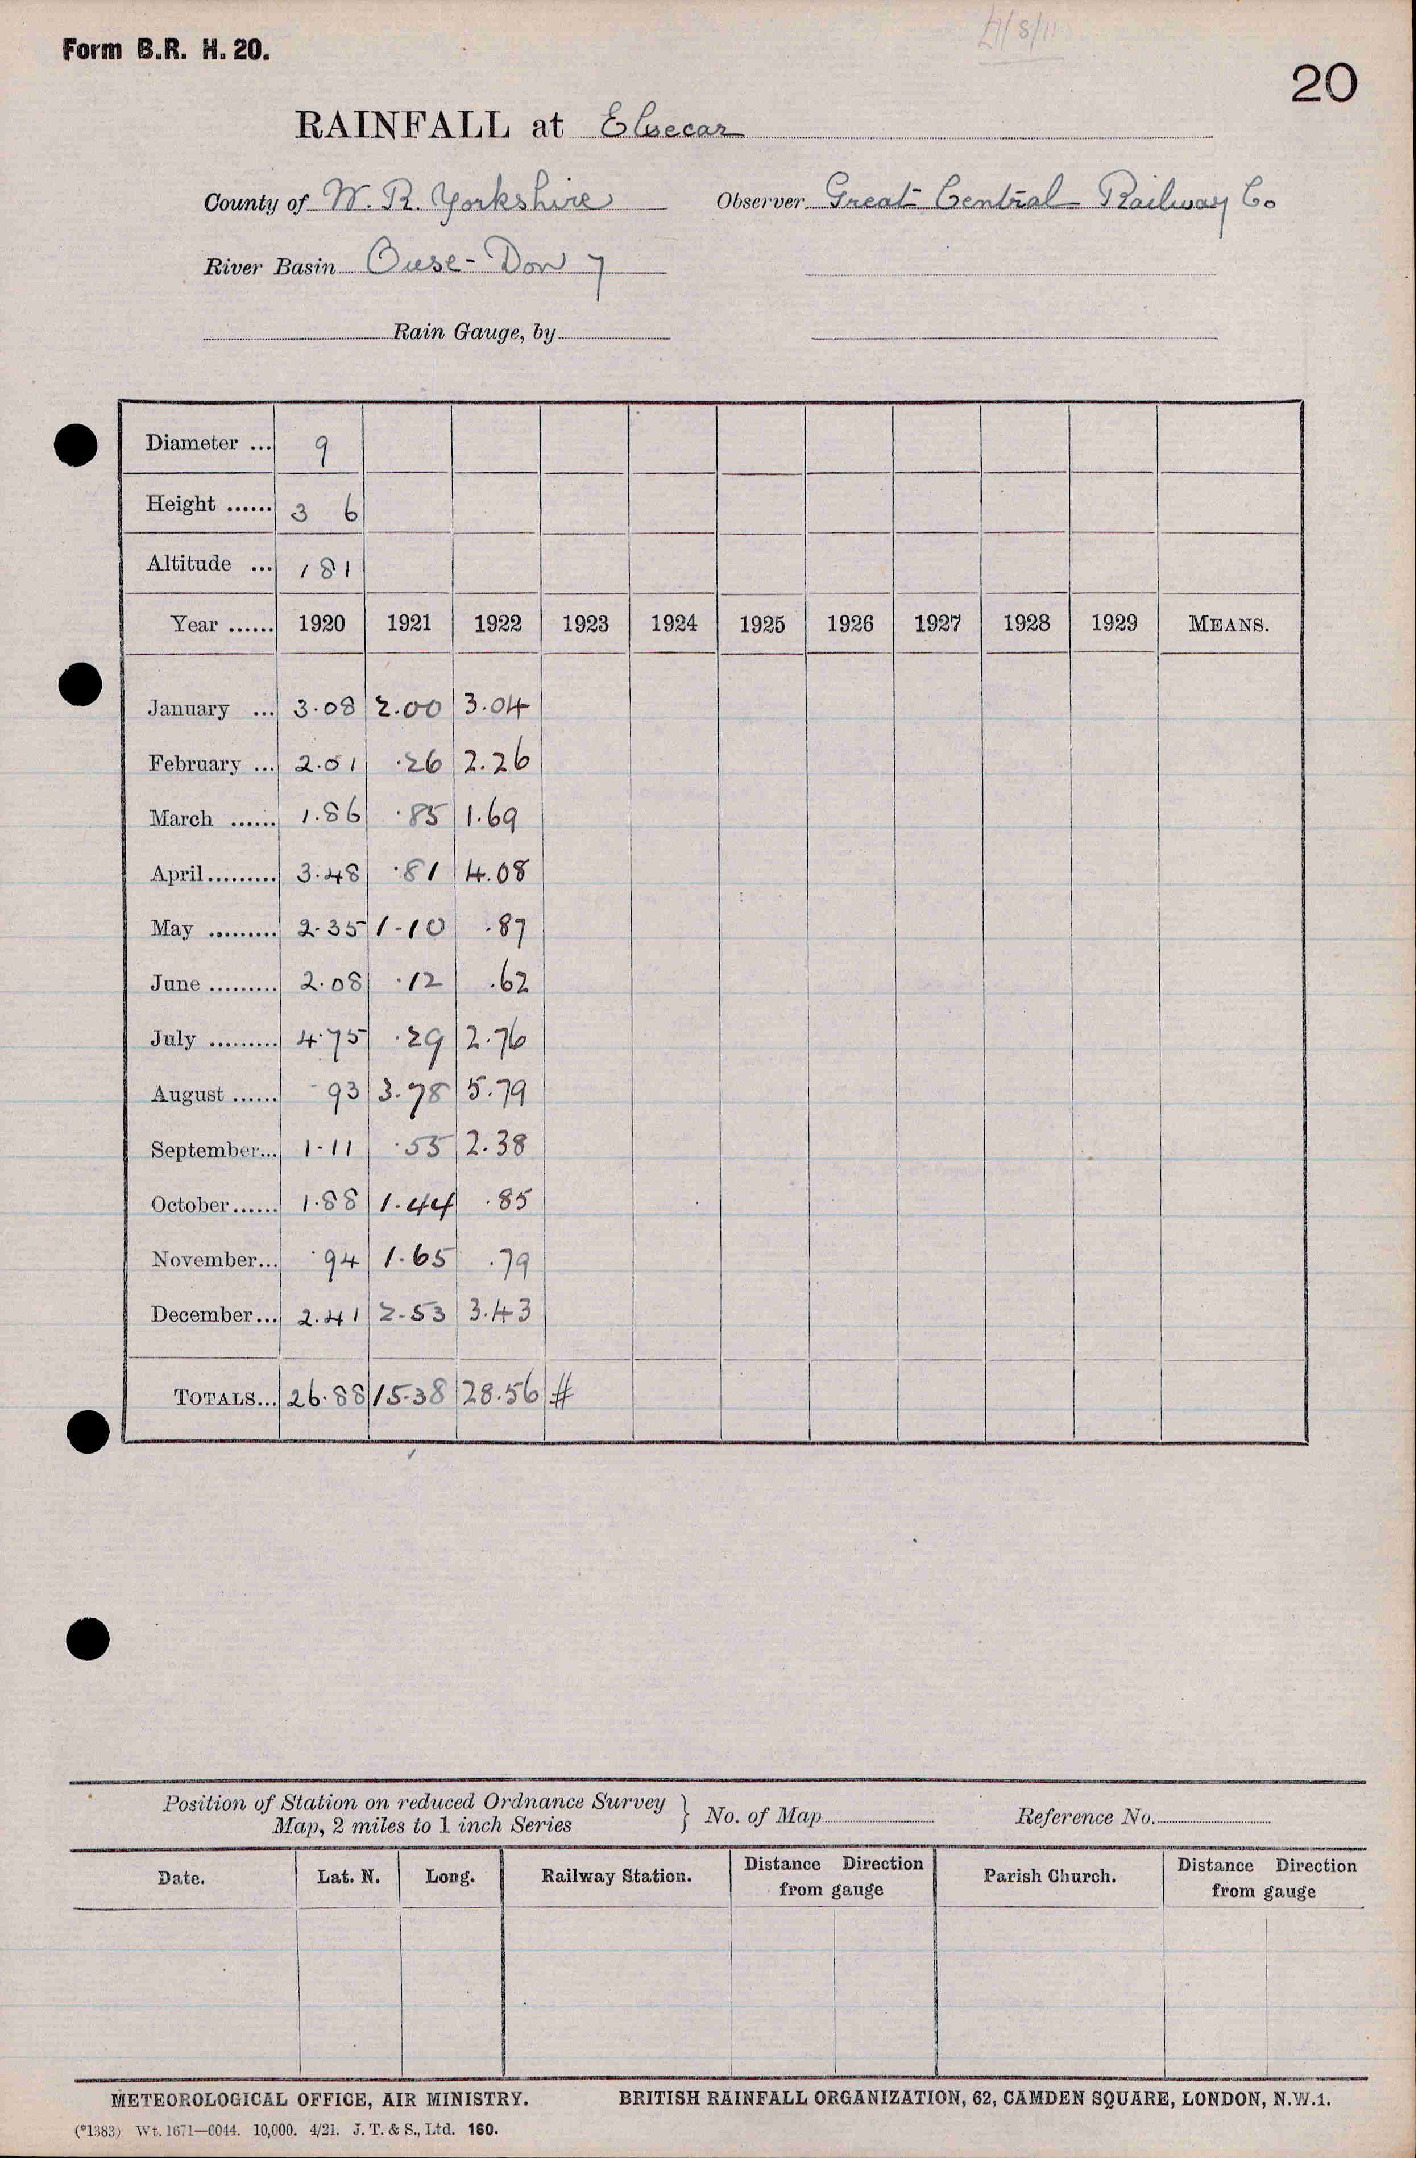 Form B.R. H. 20.
20
RAINFALL at Elsecar
County of W. R. Yorkshire Observer Great Central Railway Co
River Basin Ouse - Don 7
Rain Gauge, by
Diameter ... 9
Height ...... 3 6
Altitude ... 181
Year ...... 1920 1921 1922 1923 1924 1925 1926 1927 1928 1929 MEANS.
January ... 3.08 2.00 3.04
February ... 2.01 .26 2.26
March ...... 1.86 .85 1.69
April......... 3.48 .81 4.08
May ......... 2.35 1.10 .87
June ......... 2.08 .12 .62
July ......... 4.75 .29 2.76
August ...... .93 3.78 5.79
September... 1.11 .55 2.38
October...... 1.88 1.44 .85
November... .94 1.65 .79
December... 2.41 2.53 3.43
TOTALS... 26.88 15.38 28.56 #
Position of Station on reduced Ordnance Survey
Map, 2 miles to 1 inch Series } No. of Map Reference No.
Date. Lat. N. Long. Railway Station. Distance Direction from gauge Parish Church. Distance Direction from gauge
METEOROLOGICAL OFFICE, AIR MINISTRY. BRITISH RAINFALL ORGANIZATION, 62, CAMDEN SQUARE, LONDON, N.W.1.
(*1383) Wt. 1671—6044. 10,000. 4/21. J. T. & S., Ltd. 160.